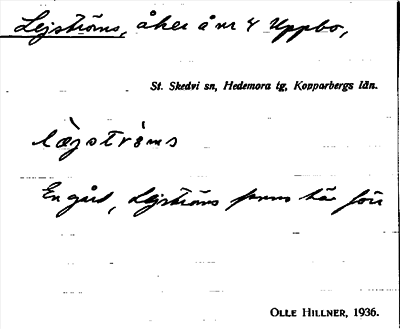 Lejströms, åker å nr 4 Uppbo,
St. Skedvi sn, Hedemora tg, Kopparbergs län.
En gård, Lejströms fanns här förr
OLLE HILLNER, 1936.